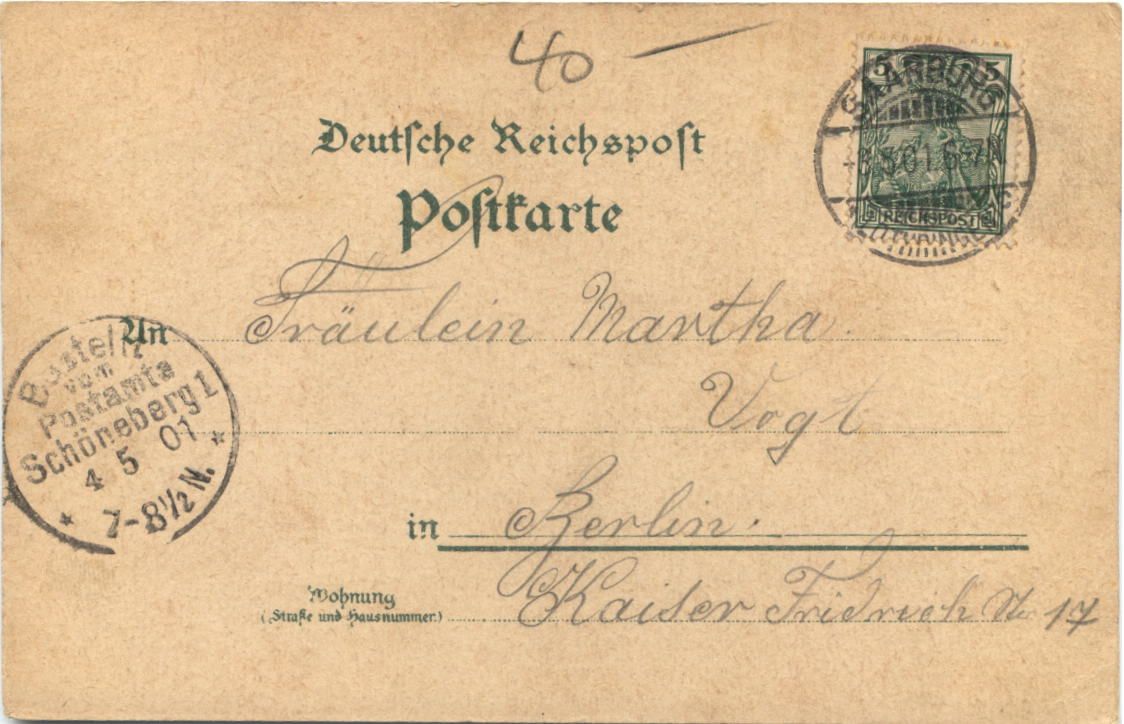 40 —
5 5
SAARBURG
3.5.01.6-7N
(LOTHRINGEN)
REICHSPOST
Deutsche Reichspost
Postkarte
An Fräulein Martha
Vogt
in Berlin.
Wohnung
(Straße und Hausnummer) Kaiser Fridrich Str 17
Bestellt
vom
Postamte
Schöneberg 1
4 5 01
* 7-8½ N. *